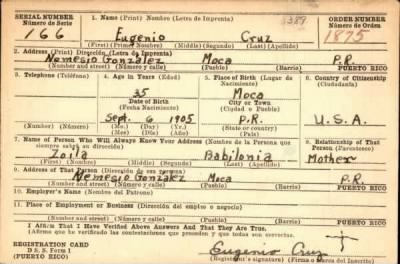 SERIAL NUMBER
Número de Serie
1. Name (Print) (Letra de Imprenta)
ORDER NUMBER
Número de Orden
166 Eugenio Cruz 1875
(First) (Primer Nombre) (Middle) (Segundo) (Last) (Apellido)
2. Address (Print) (Dirección) (Letra de Imprenta)
Nemesio González Moca P.R.
(Number and street) (Número y calle) (Pueblo) (Barrio) PUERTO RICO
3. Telephone (Teléfono)
4. Age in Years (Edad)
5. Place of Birth (Lugar de Nacimiento)
6. Country of Citizenship (Ciudadanía)
35 Moca
Date of Birth
City or Town
Fecha de Nacimiento
(Ciudad o Pueblo)
Sept. 6 1905 P.R. U.S.A.
(Number) (Número) (Mo.) (Day) (Yr.) State or country)
(Mes) (Día) (Año) (Estado o país)
7. Name of Person Who Will Always Know Your Address (Nombre de la Persona que siempre sabrá su dirección)
8. Relationship of That Person (Parentesco)
Zoila Babilonia Mother
(First) (Nombre) (Middle) (Segundo) (Last) (Apellido)
9. Address of That Person (Dirección de esa persona)
Nemesio González Moca P.R.
(Number and street) (Número y calle) (Pueblo) (Barrio) PUERTO RICO
10. Employer's Name (Nombre del Patrono)
11. Place of Employment or Business (Dirección del empleo o negocio)
(Number and street) (Número y calle) (Pueblo) (Barrio) PUERTO RICO
I Affirm That I Have Verified Above Answers And That They Are True.
Afirmo que he verificado las contestaciones que preceden y que todas son correctas.
REGISTRATION CARD
D. S. S. Form 1
(PUERTO RICO)
Eugenio Cruz
(Registrant's signature) (Firma del Inscrito)